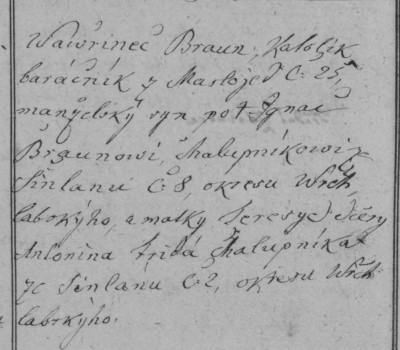 Wawřinec Braun, Katolik
baráčník z Mastojed C: 25,
manželský syn po † Ignac
Braunowi, chalupníkowi z
Sinlanu C: 8, okresu Wrch,
labského, a matky Teresye dcery
Antonina Střída chalupníka
ze Sinlanu C: 2, okresu Wrch,
labského.